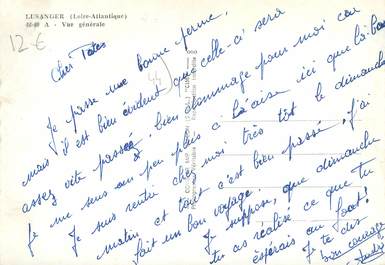 LUSANGER (Loire-Atlantique)
A - Vue générale
12 €
44
Cher
Je passe une bonne perme,
mais il est bien évident que celle-ci sera
assez vite passée, bien dommage pour moi car
je me sens un peu plus à l'aise ici que là-bas
Je suis rentré chez moi très tôt le dimanche
matin et tout s'est bien passé, j'ai
fait un bon voyage.
Je suppose, que dimanche
tu as réalisé ce que tu
espérais au foot!
Je te dis
bon courage